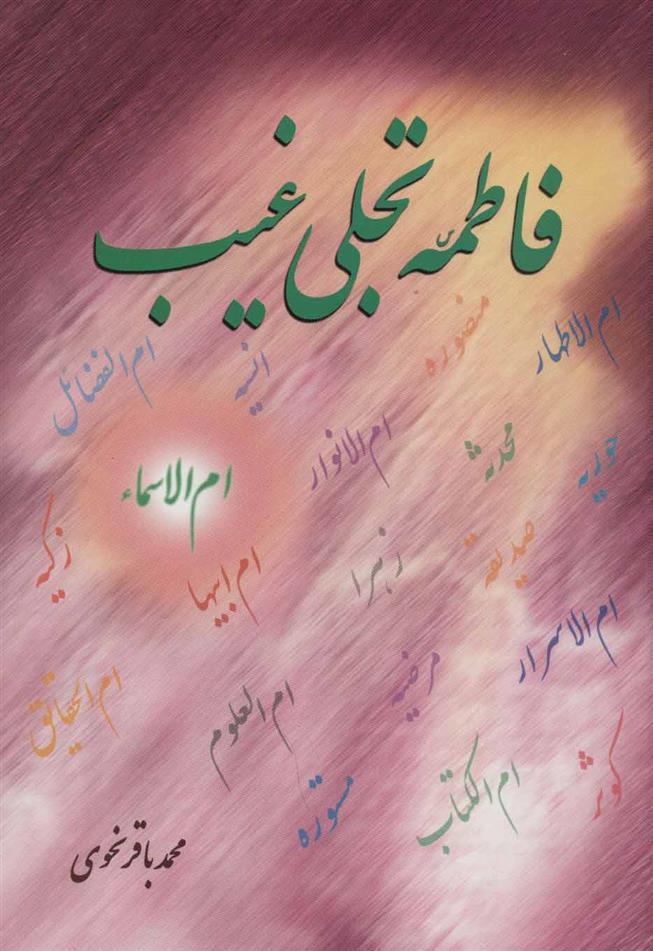 فاطمه تجلی غیب
ام الاطهار
منصوره
انسیه
ام الفضائل
حوریه
محدثه
ام الانوار
ام الاسماء
صدیقه
زهرا
ام ابیها
زکیه
ام الاسرار
مرضیه
ام العلوم
ام الحقایق
کوثر
ام الکتاب
مستوره
محمدباقر نحوی